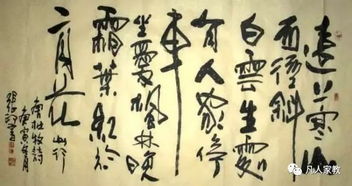 遠上寒山
石徑斜
白雲生處
有人家停
車
坐愛楓林晚
霜葉紅於
二月花 山行
杜牧詩
庚寅
凡人家教